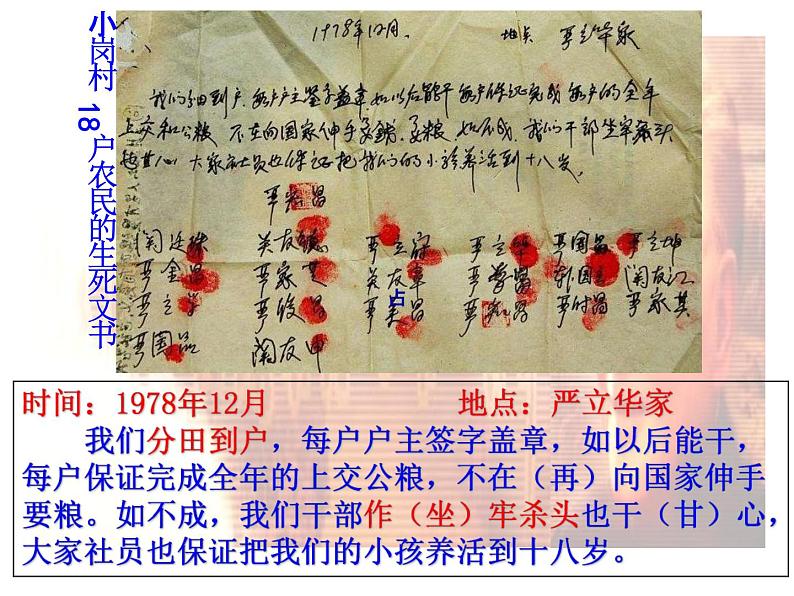 小岗村 18 户农民的生死文书
1978年12月. 地点 严立华家
我们分田到户,每户户主签字盖章,如以后能干,每户保证完成每户的全年
上交和公粮 不在向国家伸手要钱要粮 如不成,我们干部作牢杀头
也干心,大家社员也保证把我们的小孩养活到十八岁,
严宏昌
关廷珠 关友德 严立富 严立华 严国昌 严立坤
严金昌 严家芝 关友章 严学昌 韩国云 关友江
严立学 严俊昌 严美昌 严宏昌 严付昌 严家其
占
严国品 关友申
时间:1978年12月 地点:严立华家
我们分田到户,每户户主签字盖章,如以后能干,
每户保证完成全年的上交公粮,不在(再)向国家伸手
要粮。如不成,我们干部作(坐)牢杀头也干(甘)心,
大家社员也保证把我们的小孩养活到十八岁。